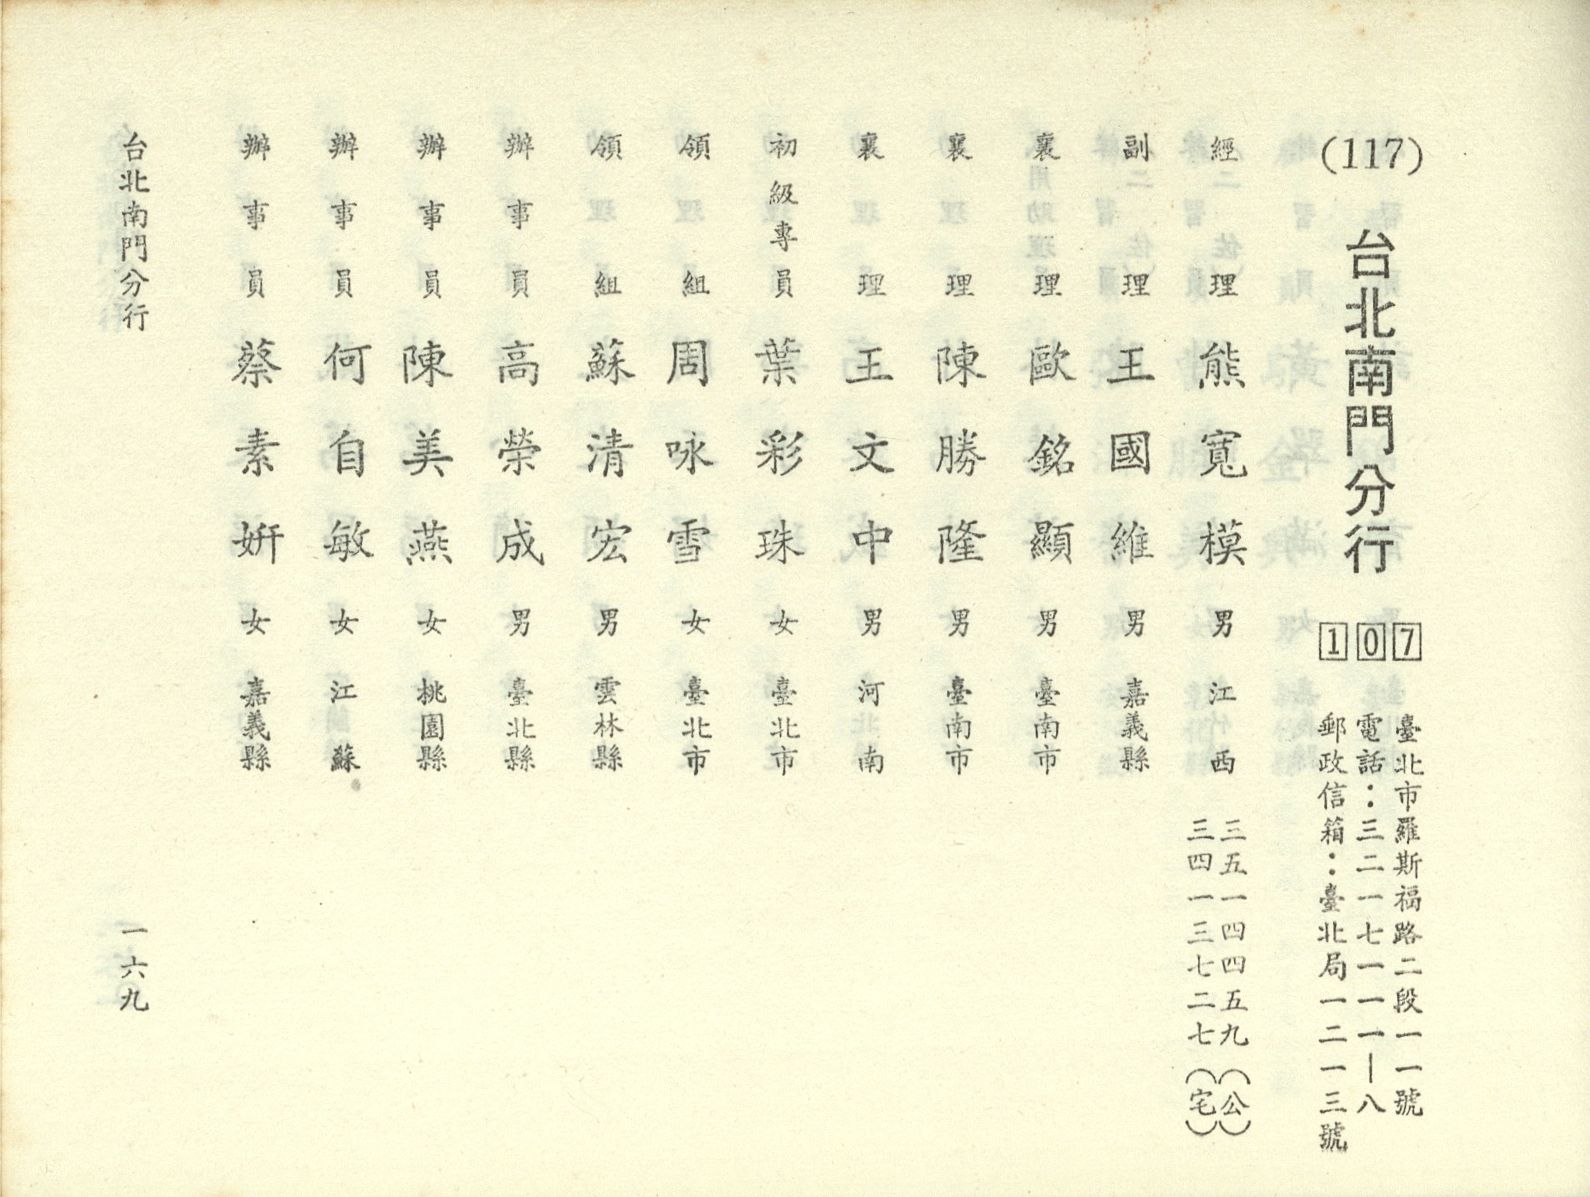 (117) 台北南門分行 107
臺北市羅斯福路二段一一號
電話：三二一七一一一｜八
郵政信箱：臺北局一二一三號
經理 熊寬模 男 江西 三五一四四五九（公）
三四一三七二七（宅）
副理 王國維 男 嘉義縣
襄理 歐銘顯 男 臺南市
襄理 陳勝隆 男 臺南市
襄理 王文中 男 河南
初級專員 葉彩珠 女 臺北市
領組 周咏雪 女 臺北市
領組 蘇清宏 男 雲林縣
辦事員 高榮成 男 臺北縣
辦事員 陳美燕 女 桃園縣
辦事員 何自敏 女 江蘇
辦事員 蔡素姸 女 嘉義縣
台北南門分行 一六九